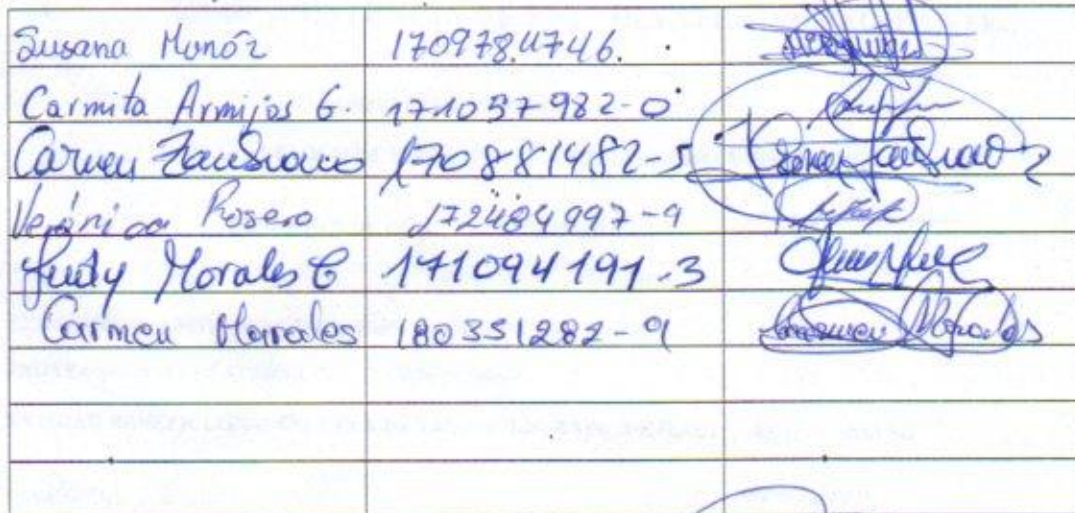 Susana Munóz 1709784746.
Carmita Armijos G. 171037982-0
Carmen Zambrano 170881482-5 Carmen Zambrano
Verónica Rosero 172484997-9
Judy Morales C 171094191-3
Carmen Morales 180351282-9 Carmen Morales